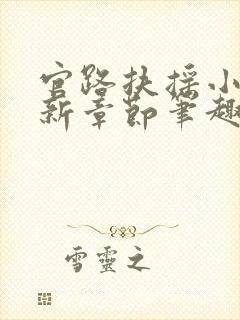 官路扶摇小
新章節筆趣
雪靈之